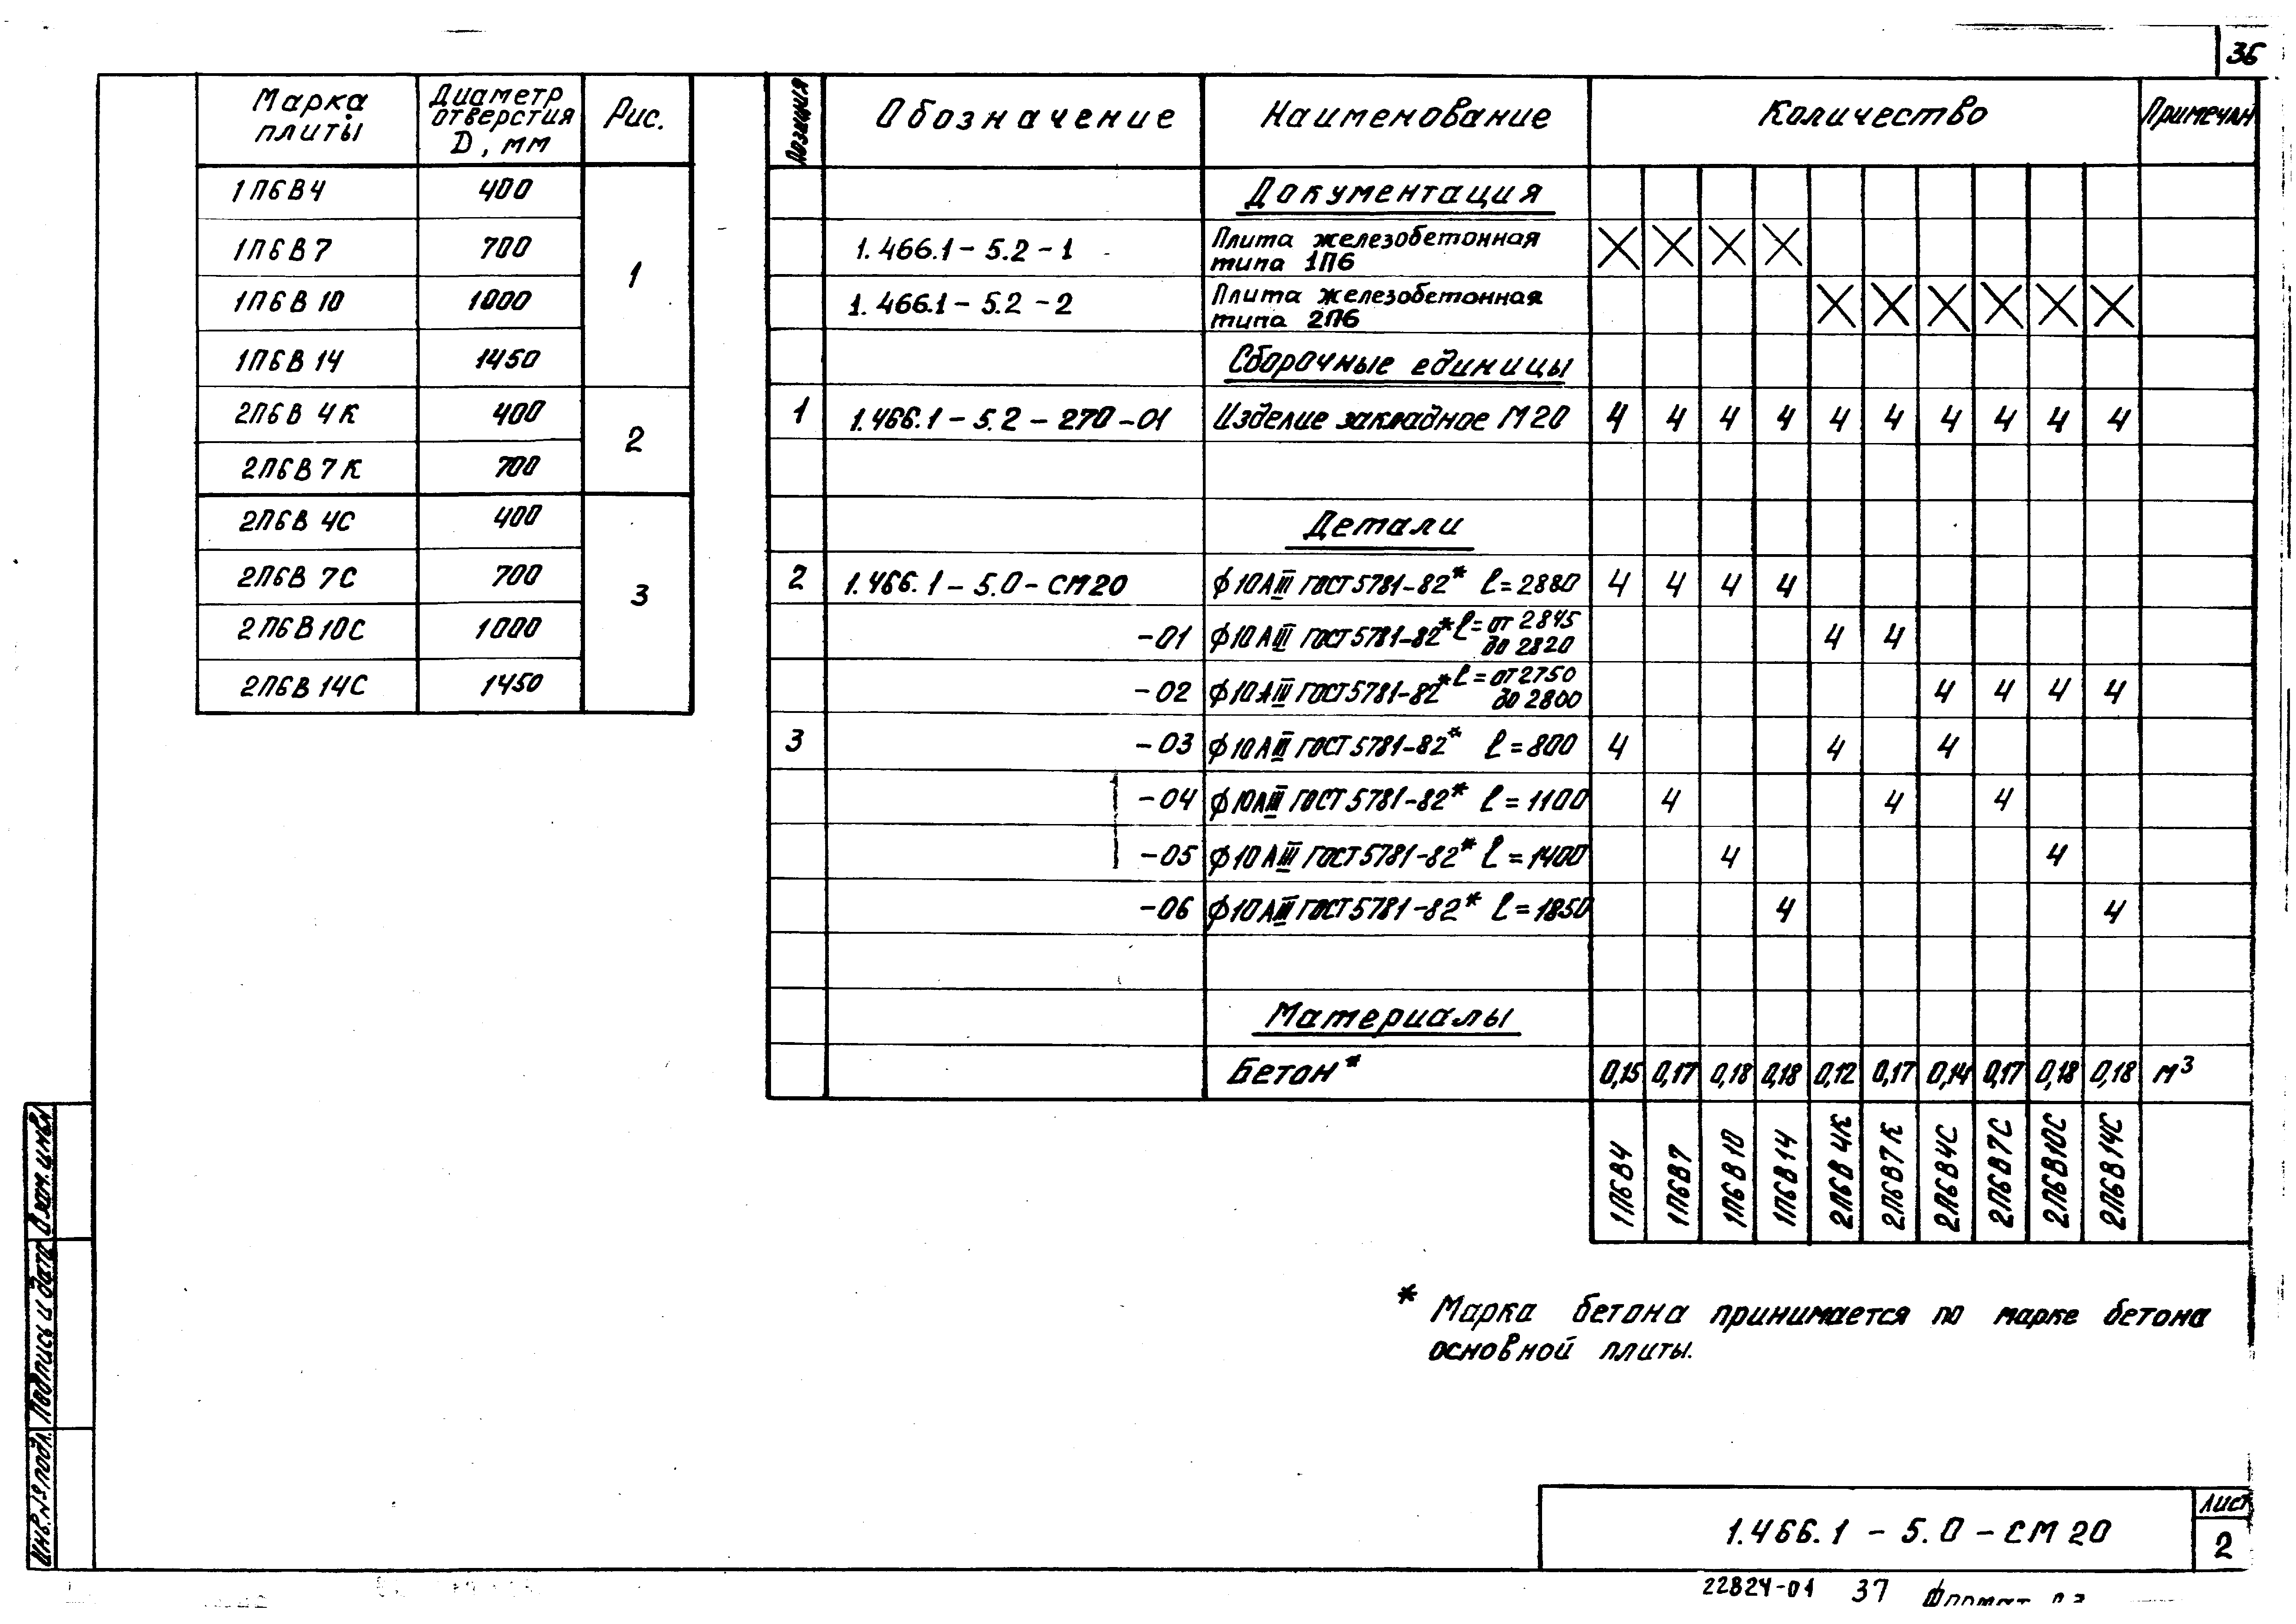 36
Марка плиты | Диаметр отверстия D, мм | Рис.
1П6В4 | 400 | 1
1П6В7 | 700
1П6В10 | 1000
1П6В14 | 1450
2П6В 4К | 400 | 2
2П6В7К | 700
2П6В 4С | 400 | 3
2П6В 7С | 700
2П6В10С | 1000
2П6В14С | 1450
Позиция | Обозначение | Наименование | Количество | Примечан
Документация
1.466.1-5.2-1 | Плита железобетонная типа 1П6 | X X X X
1.466.1-5.2-2 | Плита железобетонная типа 2П6 | X X X X X X
Сборочные единицы
1 | 1.466.1-5.2-270-01 | Изделие закладное М20 | 4 4 4 4 4 4 4 4 4 4
Детали
2 | 1.466.1-5.0-СМ20 | ф10АIII ГОСТ5781-82* ℓ=2880 | 4 4 4 4
-01 | ф10АIII ГОСТ5781-82* ℓ=от 2845 до 2820 | 4 4
-02 | ф10АIII ГОСТ5781-82* ℓ=от2750 до 2800 | 4 4 4 4
3 | -03 | ф10АIII ГОСТ5781-82* ℓ=800 | 4 4 4
-04 | ф10АIII ГОСТ5781-82* ℓ=1100 | 4 4 4
-05 | ф10АIII ГОСТ5781-82* ℓ=1400 | 4 4
-06 | ф10АIII ГОСТ5781-82* ℓ=1850 | 4 4
Материалы
Бетон* | 0,15 0,17 0,18 0,18 0,12 0,17 0,14 0,17 0,18 0,18 | м³
1П6В4 1П6В7 1П6В10 1П6В14 2П6В4К 2П6В7К 2П6В4С 2П6В7С 2П6В10С 2П6В14С
* Марка бетона принимается по марке бетона
основной плиты.
Взам.инв№
Подпись и дата
Инв.№подл.
1.466.1-5.0-СМ20
Лист
2
22824-01 37 Формат